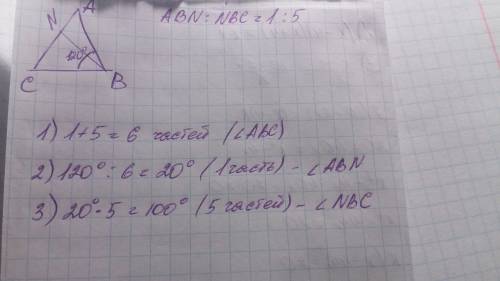 A
ABN : NBC = 1 : 5
N
120°
C
B
1) 1+5 = 6 частей (∠ABC)
2) 120° : 6 = 20° (1 часть) - ∠ABN
3) 20° · 5 = 100° (5 частей) - ∠NBC